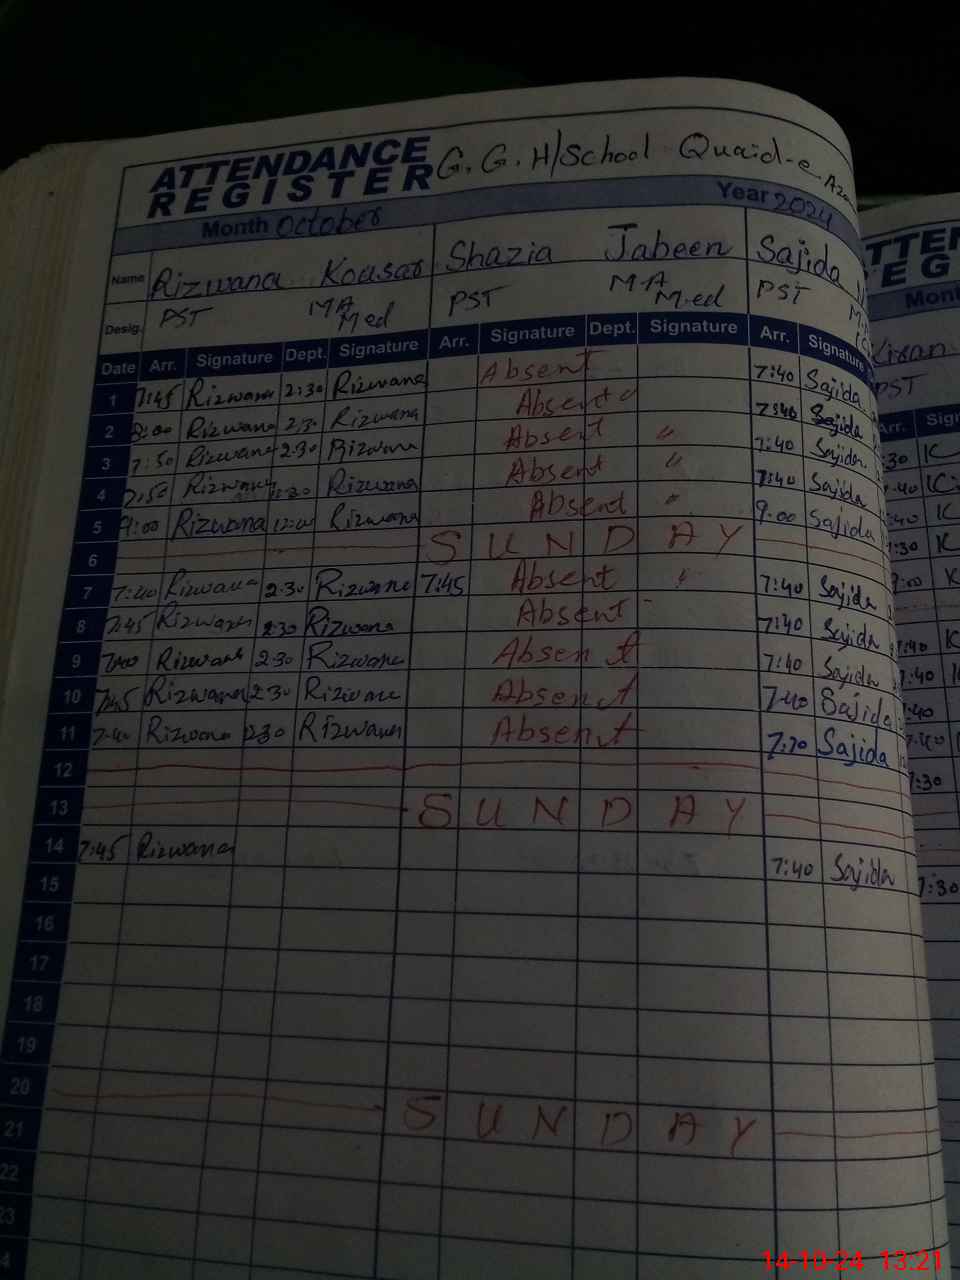 ATTENDANCE REGISTER G.G.H/School Quaid-e Azam
Month October Year 2024
Name Rizwana Koasar Shazia Jabeen Sajida
Desig. PST MA Med PST MA M.ed PST
Date Arr. Signature Dept. Signature Arr. Signature Dept. Signature Arr. Signature
1 7:45 Rizwana 2:30 Rizwana Absent 7:40 Sajida
2 8:00 Rizwana 2:30 Rizwana Absent 7:40 Sajida
3 7:50 Rizwana 2:30 Rizwana Absent " 7:40 Sajida
4 7:50 Rizwana Rizwana Absent " 7:40 Sajida
5 9:00 Rizwana 12:00 Rizwana Absent " 9:00 Sajida
6 SUNDAY
7 7:40 Rizwana 2:30 Rizwana 7:45 Absent " 7:40 Sajida
8 7:45 Rizwana 2:30 Rizwana Absent 7:40 Sajida
9 Rizwana 2:30 Rizwana Absent 7:40 Sajida
10 7:45 Rizwana 2:30 Rizwana Absent 7:40 Sajida
11 7:40 Rizwana 2:30 Rizwana Absent Sajida
12
13 SUNDAY
14 7:45 Rizwana 7:40 Sajida
15
16
17
18
19
20 SUNDAY
21
22
23
14-10-24 13:21